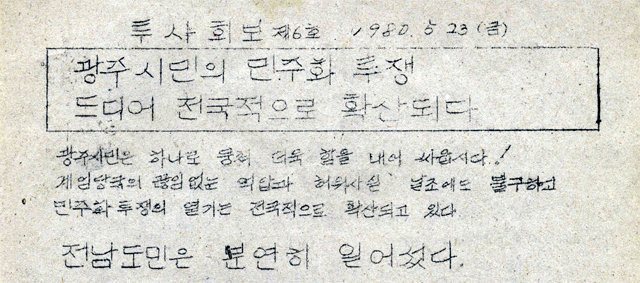 투사회보 제6호 1980. 5 23 (금)
광주시민의 민주화 투쟁
드디어 전국적으로 확산되다
광주시민은 하나로 뭉쳐 더욱 힘을 내어 싸웁시다!
계엄당국의 끊임없는 억압과 허위사실 날조에도 불구하고
민주화 투쟁의 열기는 전국적으로 확산되고 있다
전남도민은 분연히 일어섰다.